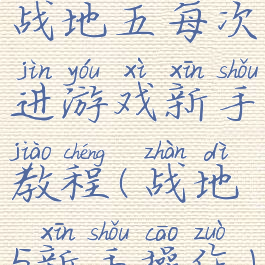 战地五每次
jìn yóu xì xīn shǒu
进游戏新手
jiào chéng zhàn dì
教程(战地
xīn shǒu cāo zuò
5新手操作)